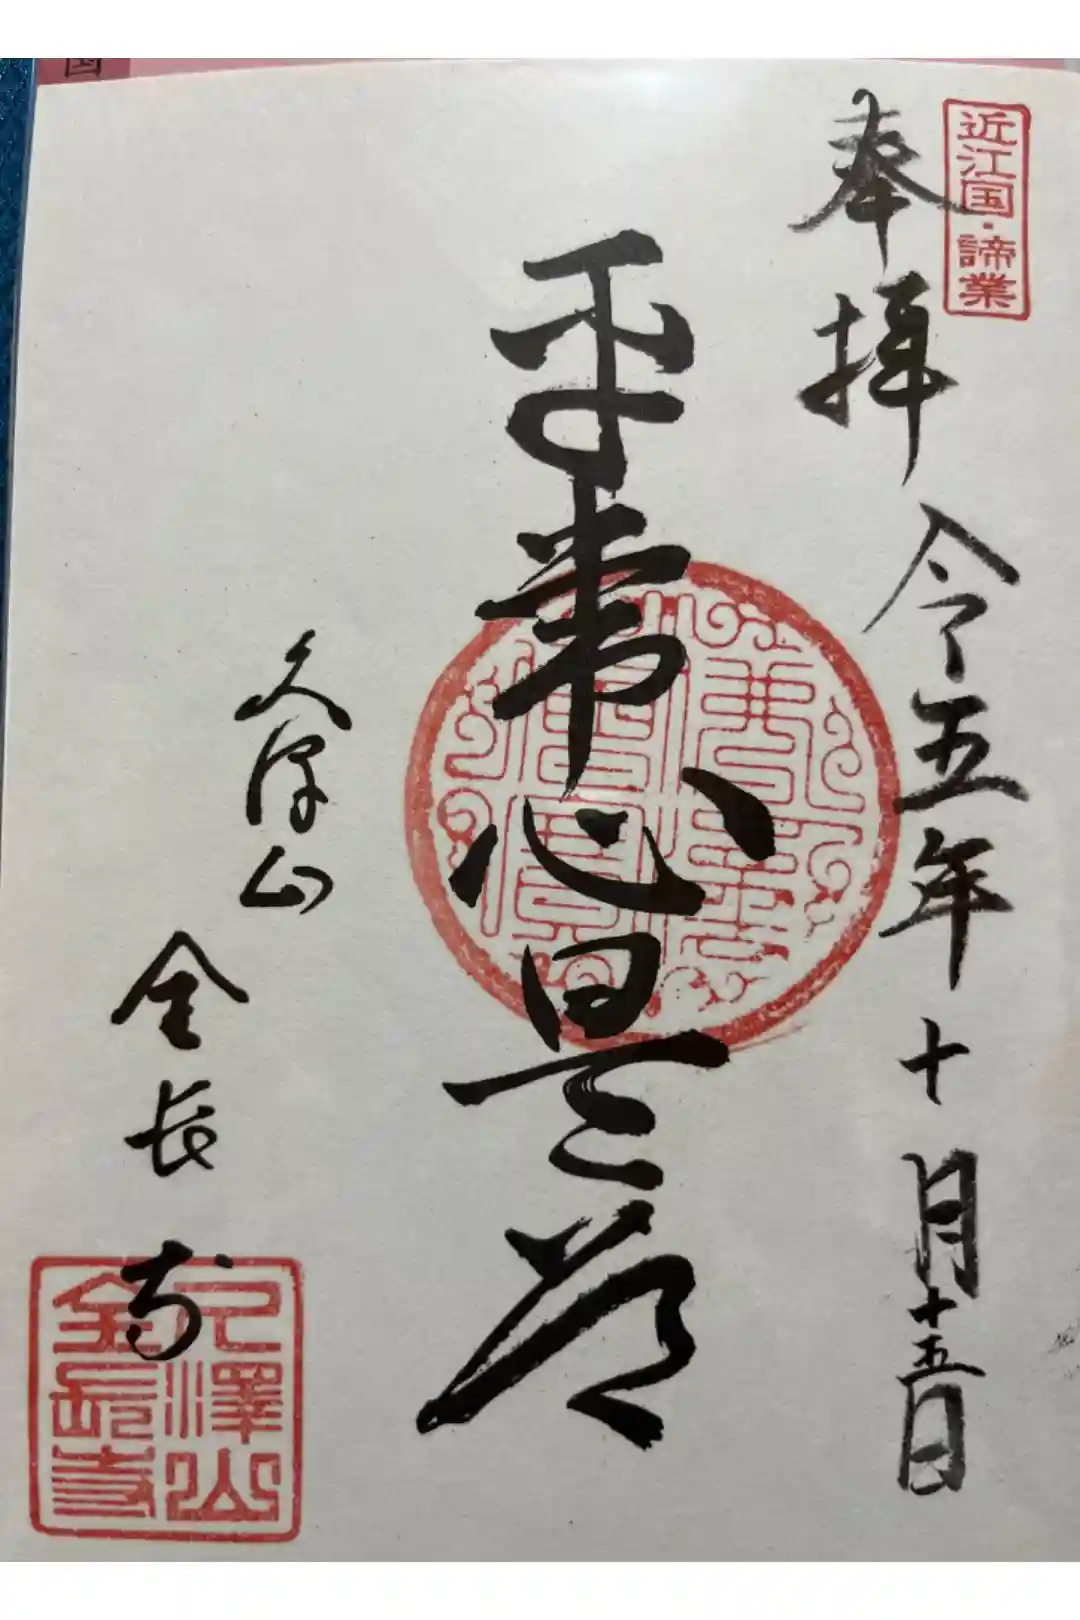 国
近江国・諦業
奉拝
令五年十月十五日
平常心是道
久澤山
全長寺
久澤山
全長寺